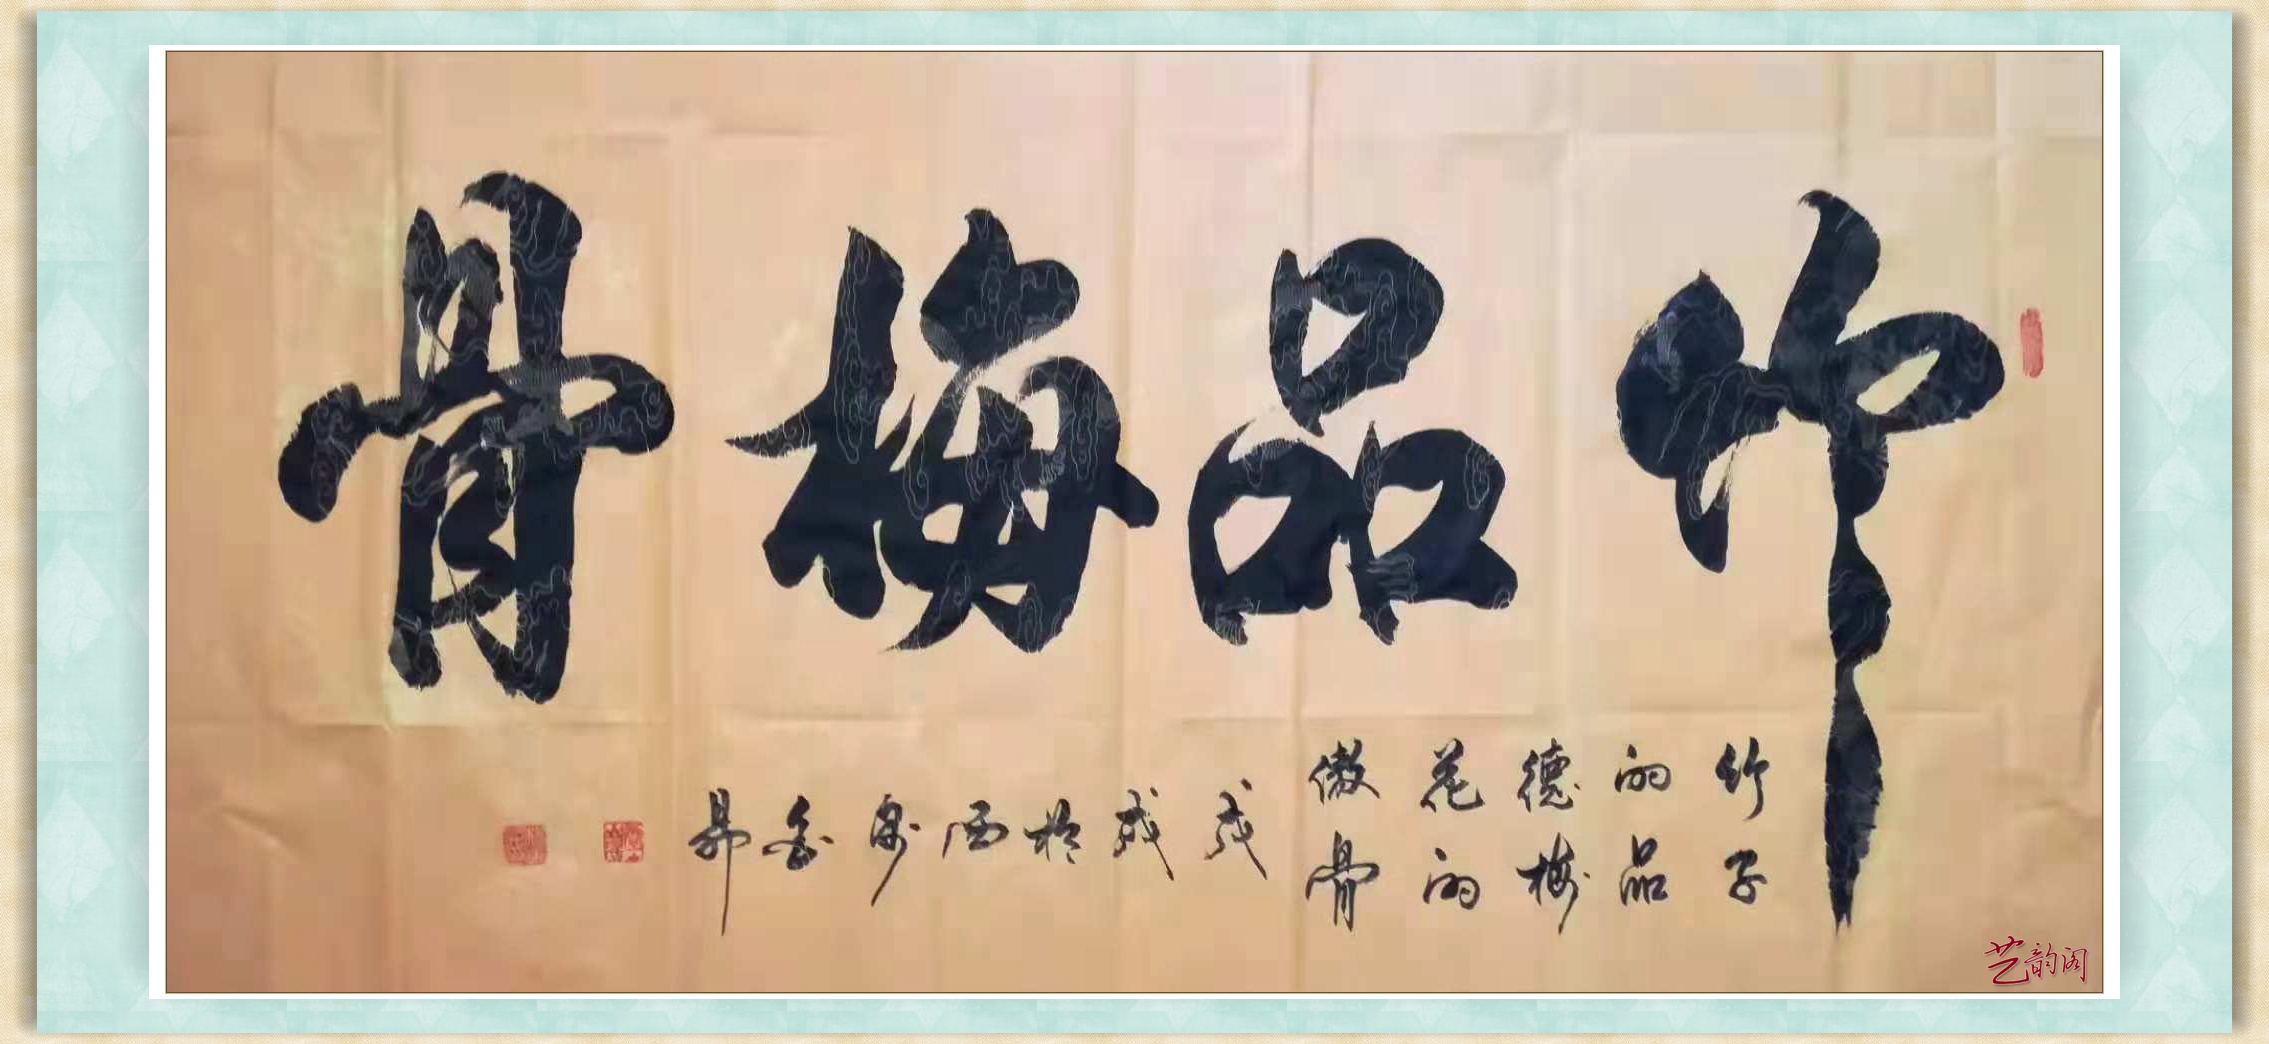 竹品梅骨
竹子
的品
德梅
花的
傲骨
戊戌於西
艺韵阁